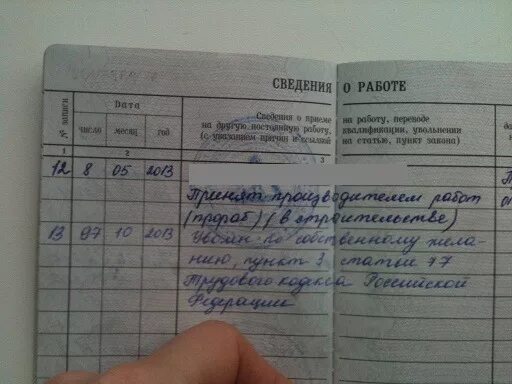 СВЕДЕНИЯ О РАБОТЕ
№ записи
Дата
число месяц год
Сведения о приеме на работу, переводе
на другую постоянную работу, квалификации, увольнении
(с указанием причин и ссылкой на статью, пункт закона)
1 2 3
12 8 05 2013
Принят производителем работ
(прораб) (в строительстве)
13 07 10 2013 Уволен по собственному жела-
нию, пункт 3 статьи 77
Трудового кодекса Российской
Федерации